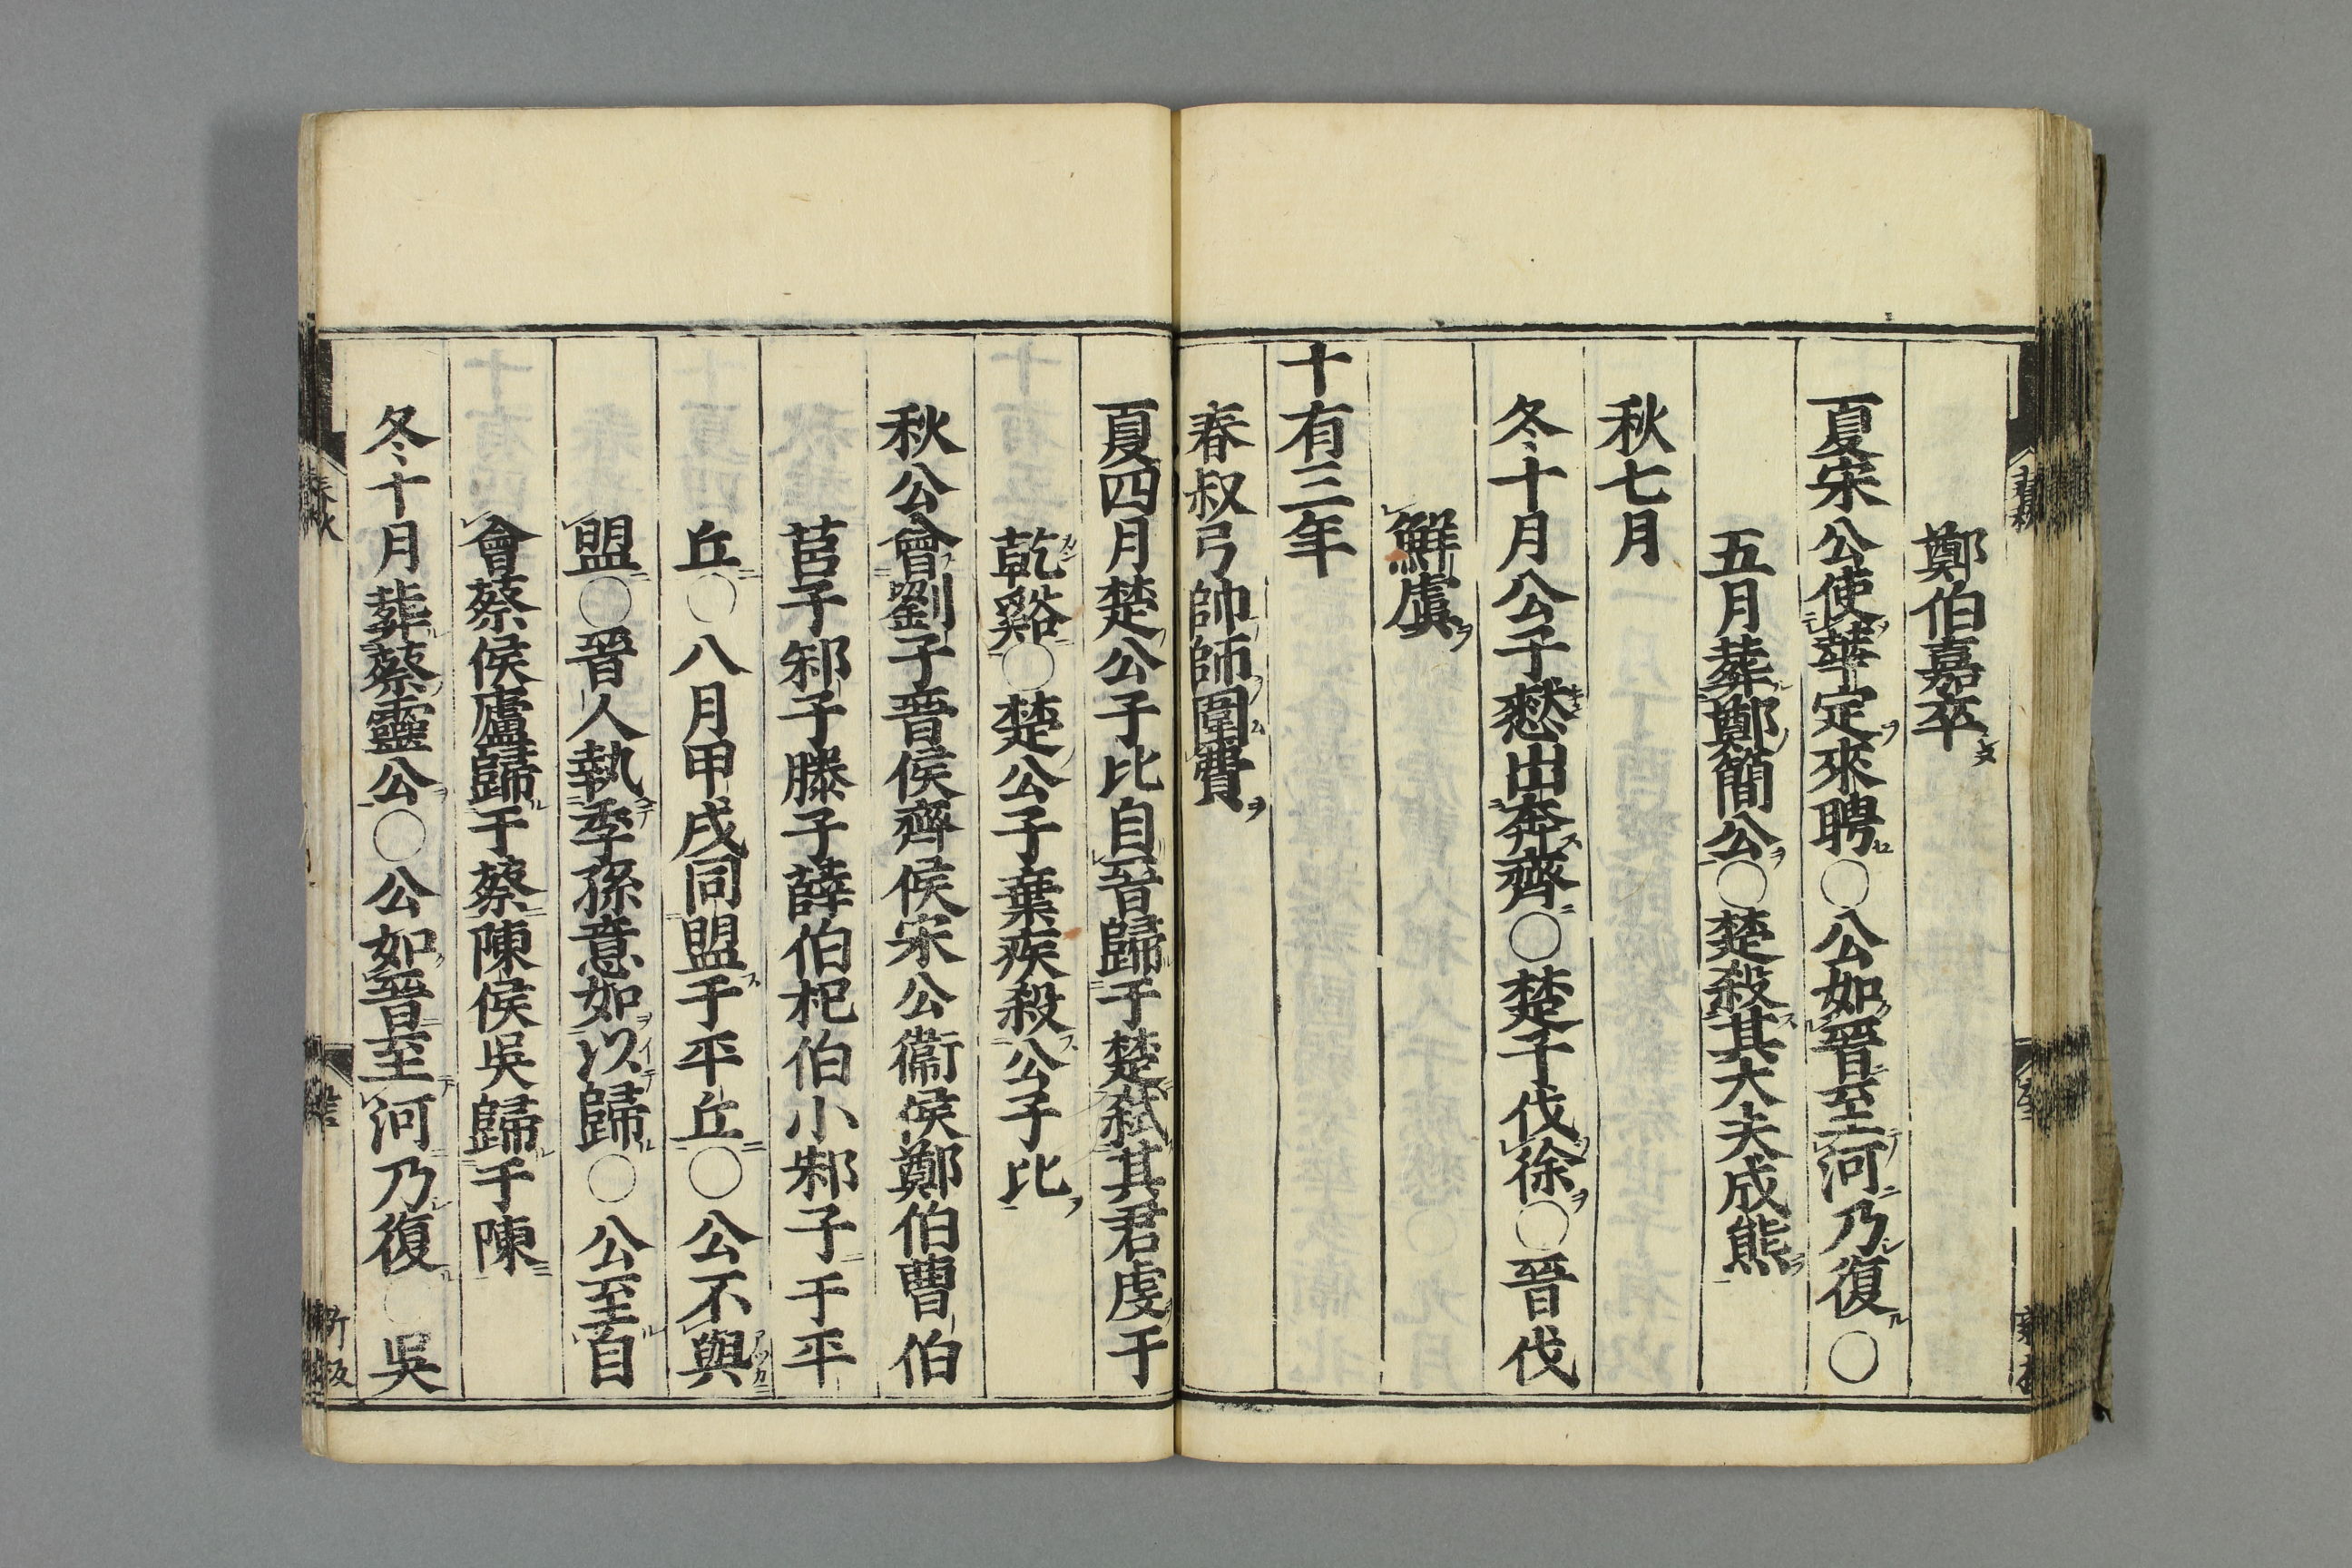 鄭伯嘉卒
夏宋公使華定來聘○公如晉至河乃復○
五月葬鄭簡公○楚殺其大夫成熊
秋七月
冬十月公子憖出奔齊○楚子伐徐○晉伐
鮮虞
十有三年
春叔弓帥師圍費
夏四月楚公子比自晉歸于楚弑其君虔于
乾谿○楚公子棄疾殺公子比
秋公會劉子晉侯齊侯宋公衞侯鄭伯曹伯
莒子邾子滕子薛伯杞伯小邾子于平
丘○八月甲戌同盟于平丘○公不與
盟○晉人執季孫意如以歸○公至自
會蔡侯廬歸于蔡陳侯吳歸于陳
冬十月葬蔡靈公○公如晉至河乃復○吳
春秋